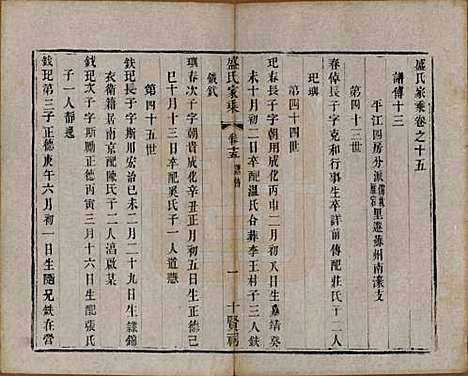 盛氏家乘卷之十五
譜傳十三
平江四房分派儒籙里遷蘇州南濠支
第四十三世
春倬長子字克和行事生卒詳前傳配莊氏子二人
𤣱璵
第四十四世
𤣱春長子字朝用成化丙申二月初五日生嘉靖癸
未十月初三日卒配溫氏合葬李王村子三人鉄
盛氏家乘 卷十五 譜傳 一 十賢祠
鐵釴
璵春次子字朝貴成化辛丑正月初五日生正德己
巳十月十三日卒配奚氏子一人道憑
第四十五世
鉄長子字斯用宏治己未二月二十九日生隸錦
衣衛籍居南京配陳氏子二人滔啟某
次子字斯勵正德丙寅三月十六日生配張氏
子一人靜邊
第三子正德庚午六月初一日生隨兄鉄在營